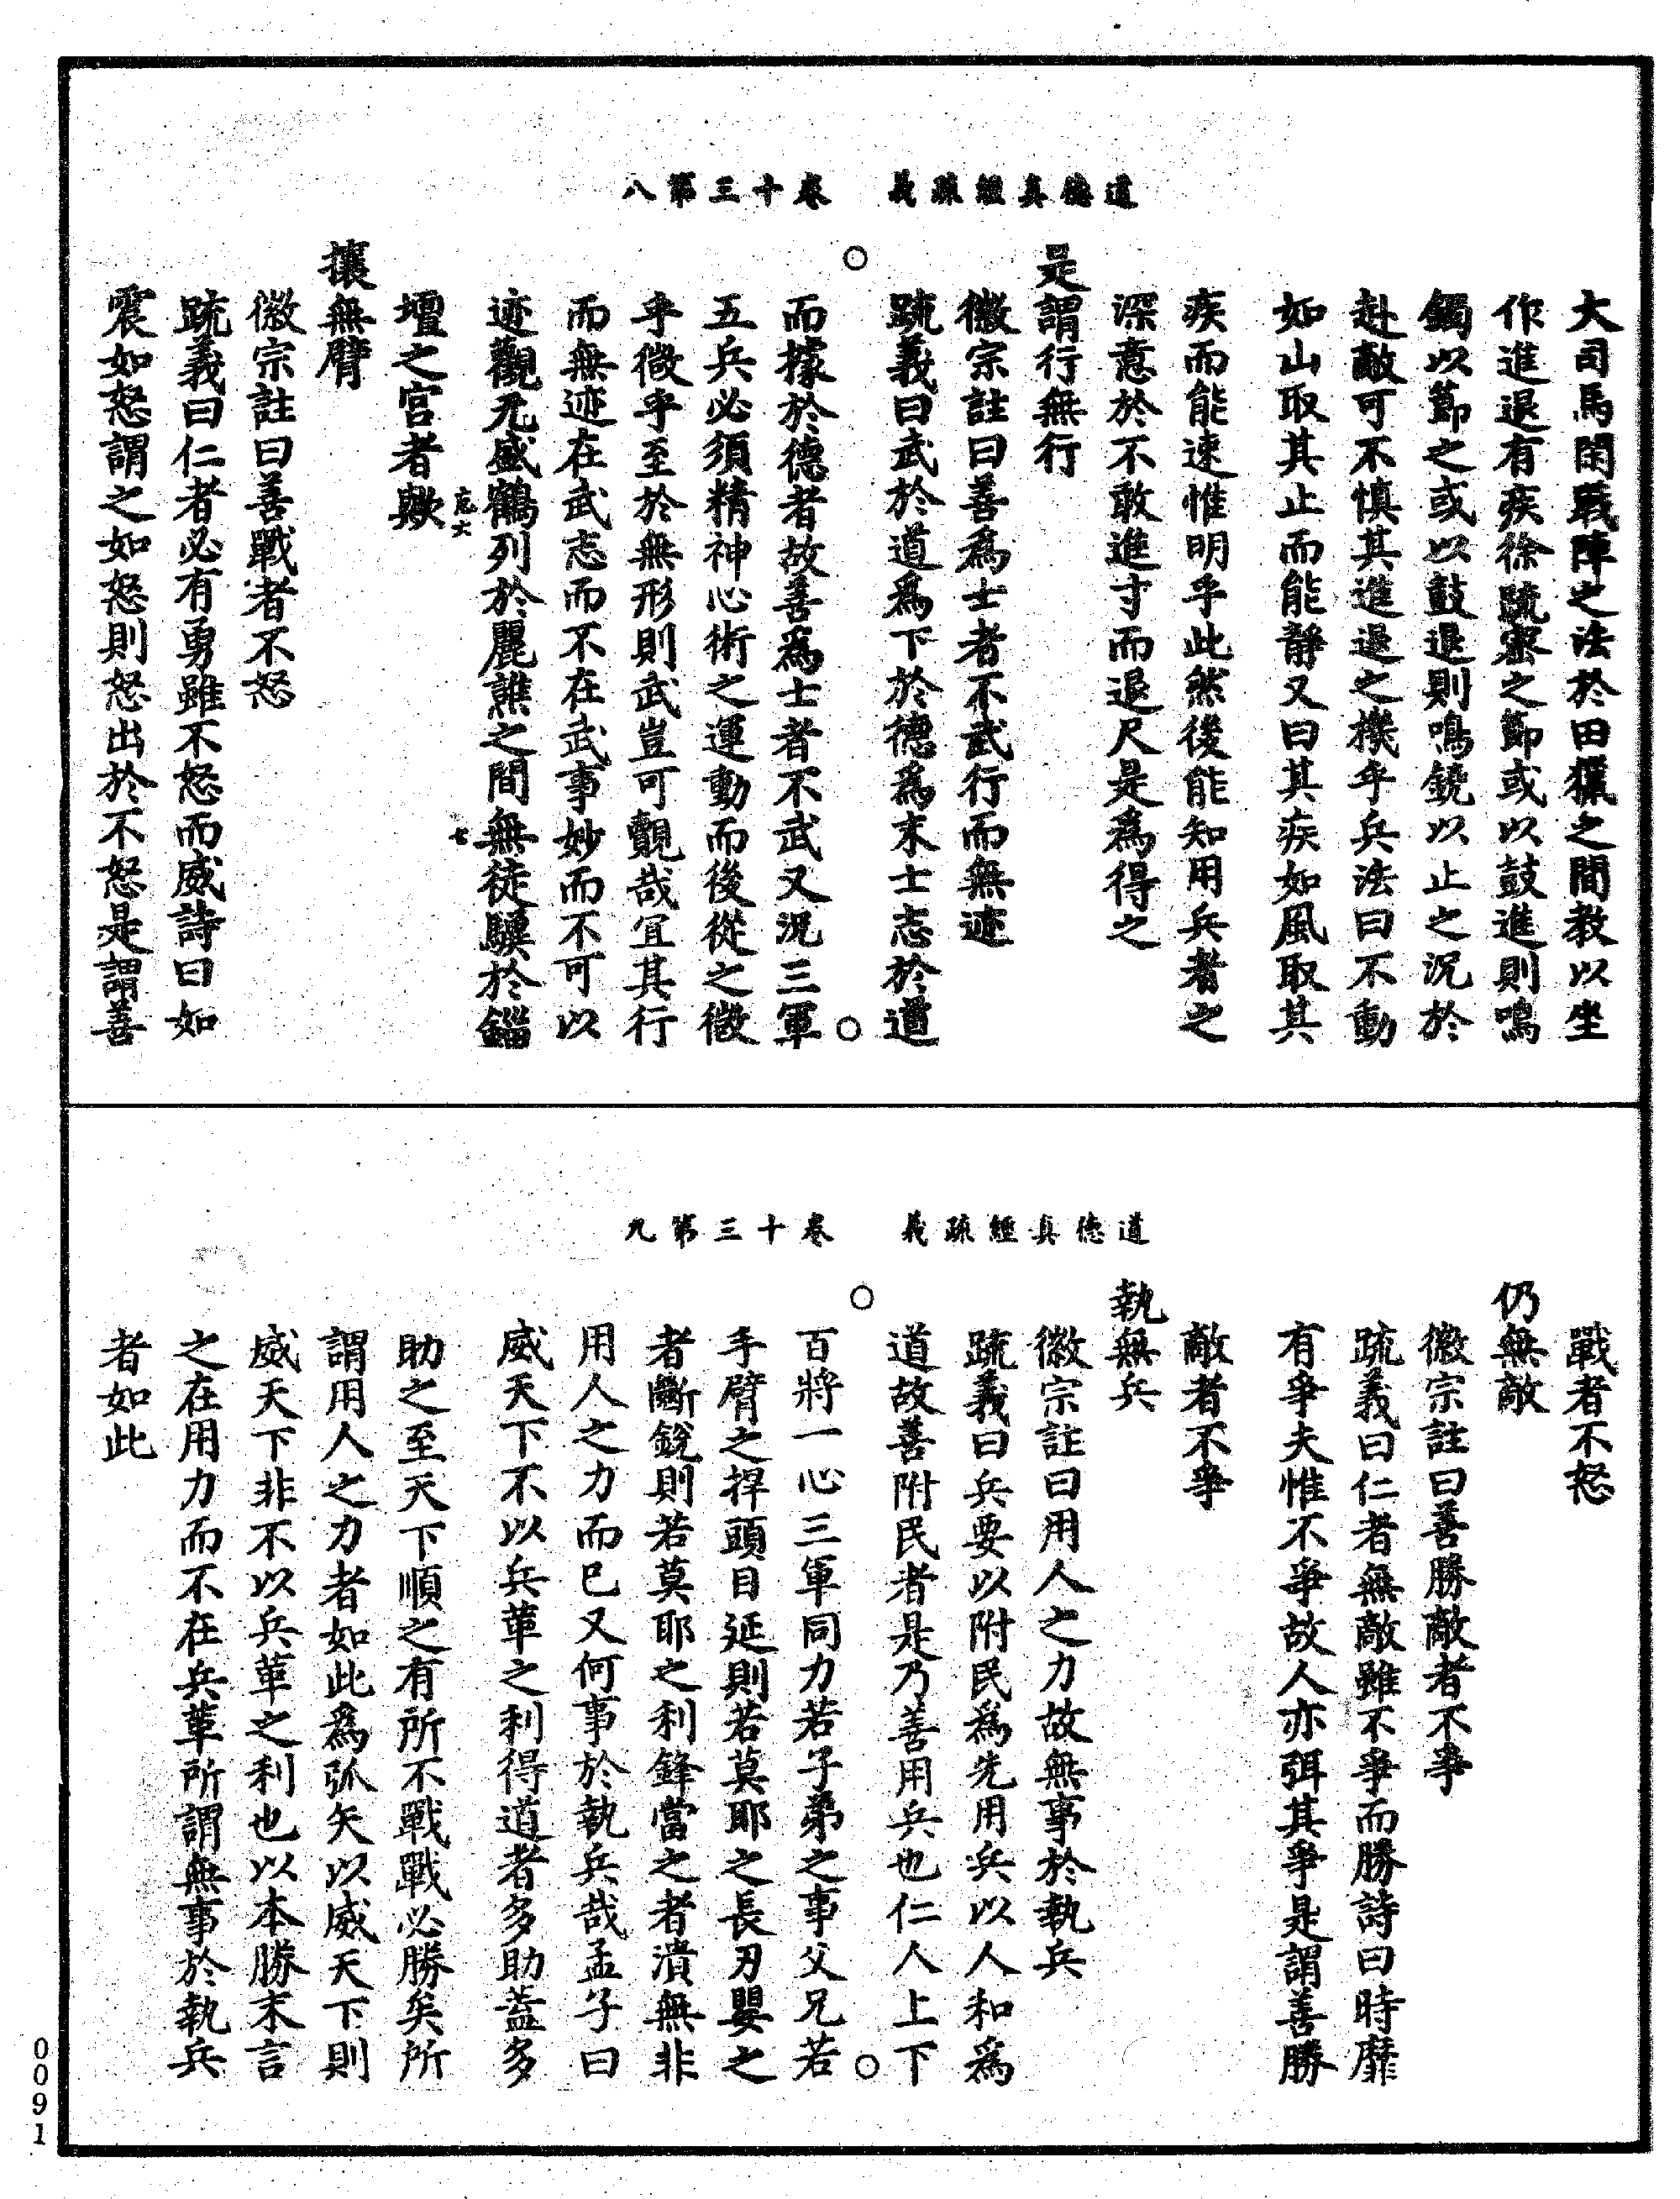 道德真經疏義　卷十三第八
大司馬閑戰陣之法於田獵之間教以坐
作進退有疾徐䟽密之節或以鼓進則鳴
鐲以節之或以鼓退則鳴鐃以止之況於
赴敵可不慎其進退之機乎兵法曰不動
如山取其止而能靜又曰其疾如風取其
疾而能速惟明乎此然後能知用兵者之
深意於不敢進寸而退尺是爲得之
是謂行無行
徽宗註曰善爲士者不武行而無迹
䟽義曰武於道爲下於德爲末士志於道
而據於德者故善爲士者不武又況三軍
五兵必須精神心術之運動而後從之微
乎微乎至於無形則武豈可覿哉宜其行
而無迹在武志而不在武事妙而不可以
迹觀尤盛鶴列於麗譙之間無徒驥於錙
壇之宮者歟
攘無臂
徽宗註曰善戰者不怒
䟽義曰仁者必有勇雖不怒而威詩曰如
震如怒謂之如怒則怒出於不怒是謂善
道德真經疏義　卷十三第九
戰者不怒
仍無敵
徽宗註曰善勝敵者不爭
䟽義曰仁者無敵雖不爭而勝詩曰時靡
有爭夫惟不爭故人亦弭其爭是謂善勝
敵者不爭
執無兵
徽宗註曰用人之力故無事於執兵
䟽義曰兵要以附民爲先用兵以人和爲
道故善附民者是乃善用兵也仁人上下
百將一心三軍同力若子弟之事父兄若
手臂之捍頭目延則若莫耶之長刃嬰之
者斷銳則若莫耶之利鋒當之者潰無非
用人之力而已又何事於執兵哉孟子曰
威天下不以兵革之利得道者多助蓋多
助之至天下順之有所不戰戰必勝矣所
謂用人之力者如此爲弧矢以威天下則
威天下非不以兵革之利也以本勝末言
之在用力而不在兵革所謂無事於執兵
者如此
0091